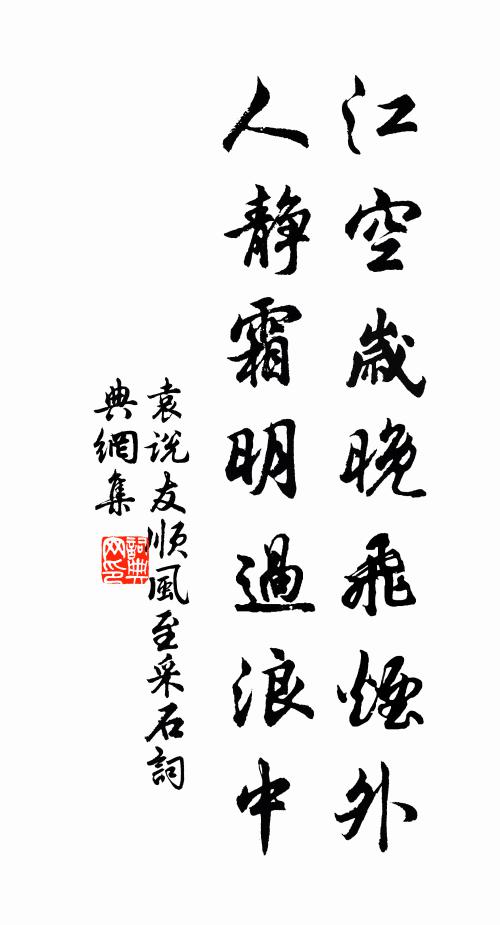 江空歲晚飛煙外
人靜霜明過浪中
袁說友順風至采石詞
典網集
詞典
网印